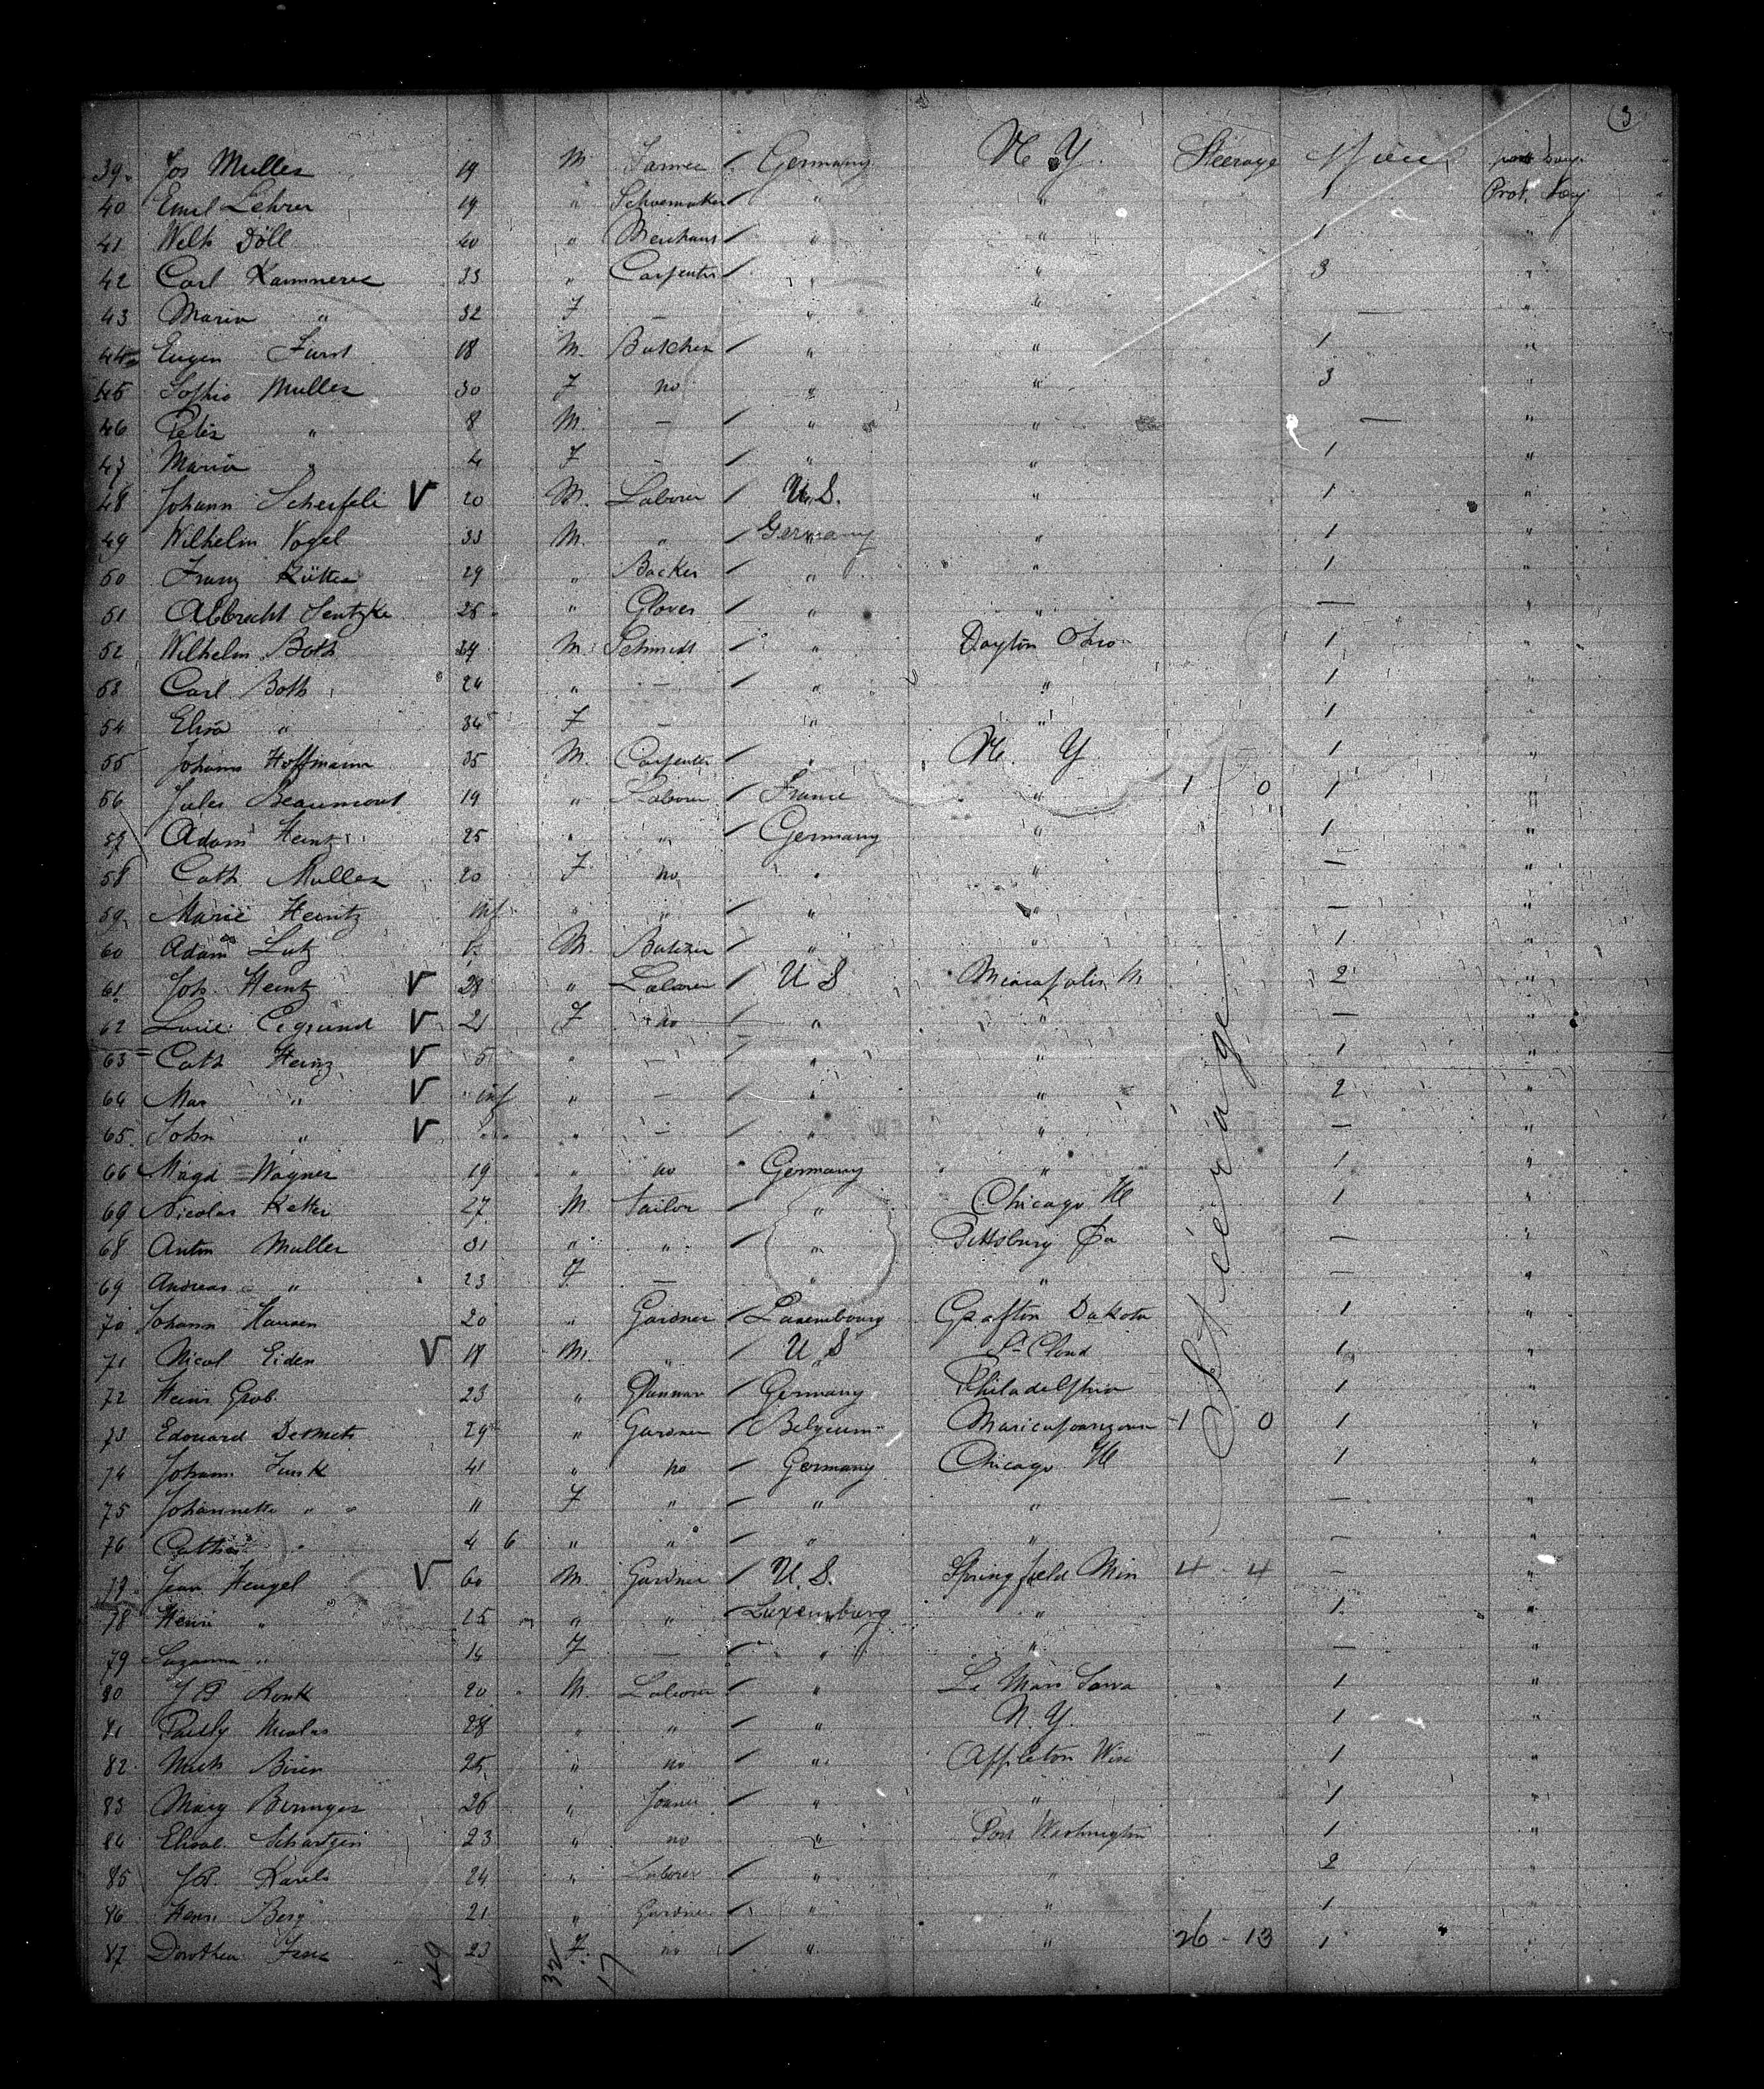 3
39. Jos Muller 19 M. Farmer / Germany N. Y. Steerage 1 piece
40 Emil Lehrer 19 " Schoemaker / " " 1 Prot. Voy
41 Welh Döll 40 " / " " 1 "
42 Carl 33 " Carpenter / " " 3 "
43 Maria " 32 F — " " — "
44 Eugen Furst 18 M. Butcher / " " 1 "
45 Sophie Muller 30 F no " " 3 "
46 Peter " 8 M. — " " — "
47 Maria " 4 F — / " " 1 "
48 Johann V 20 M. Laborer / U. S. " 1 "
49 Wilhelm Vogel 33 M. " / Germany " 1 "
50 Franz 29 " Backer / " " 1 "
51 Albrecht 25 " Glover / " " — "
52 Wilhelm Both 34 M. Schmidt / " Dayton Ohio 1 "
53 Carl Both 24 " — / " " 1 "
54 Elisa " 36 F — " " 1 "
55 Johann Hoffmann 35 M. Carpenter / " N. Y. 1 "
56 Jules Beaumont 19 " Laborer / France " 1 0 1 "
57 Adam Heintz 25 " " / Germany " 1 "
58 Cath Muller 20 F no " " — "
59 Marie Heintz inf " " / " " — "
60 Adam Lutz M. Butcher / " " 1 "
61 Joh. Heintz V 28 " Laborer / U S M 2 "
62 V 21 F no / " " — "
63 Cath Heinz V 5 " — / " " 1 "
64 Mar " V inf " — / " " 2 "
65. John " V " " — / " " — "
66 Magd Wagner 19 " no Germany " 1 "
69 Nicolas Ketter 27 M. Tailor / " Chicago Ill 1 "
68 Anton Muller 31 " " / " Pittsburg Pa — "
69 Andreas " 23 F — " " — "
70 Johann Hansen 20 " Gardner / Luxembourg Grafton Dakota 1 "
71 Nicol Eiden V 18 M. " / U S St Cloud 1 "
72 Heinr Grob 23 " / Germany Philadelphia 1 "
73 Edouard DeSmets 29 " Gardner / Belgium 1 0 1 "
74 Johann Funk 41 " no / Germany Chicago Ill 1 "
75 Johannette " 11 F " / " " — "
76 " 4 6 " " / " " — "
Steerage
Jean Hengel V 60 M Gardner / U. S. Springfield Min 4 - 4 — "
78 Henri " 25 " " / Luxemburg " 1 "
79 Suzanna " 14 F — / " " — "
80 J P 20 M. Laborer / " Le Mars Iowa 1 "
81 Nicolas 28 " " / " N. Y. 1 "
82 25 " no / " Appleton Wis 1 "
83 Mary 26 " / " " 1 "
84 23 " no " Port Washington 1 "
85 J P. Karels 24 " Laborer / " " 2 "
86 Henri Berg 21 " Gardner / " " 1 "
87 Dorothea 23 F. no / " " 26 - 13 1 "
49 32 17